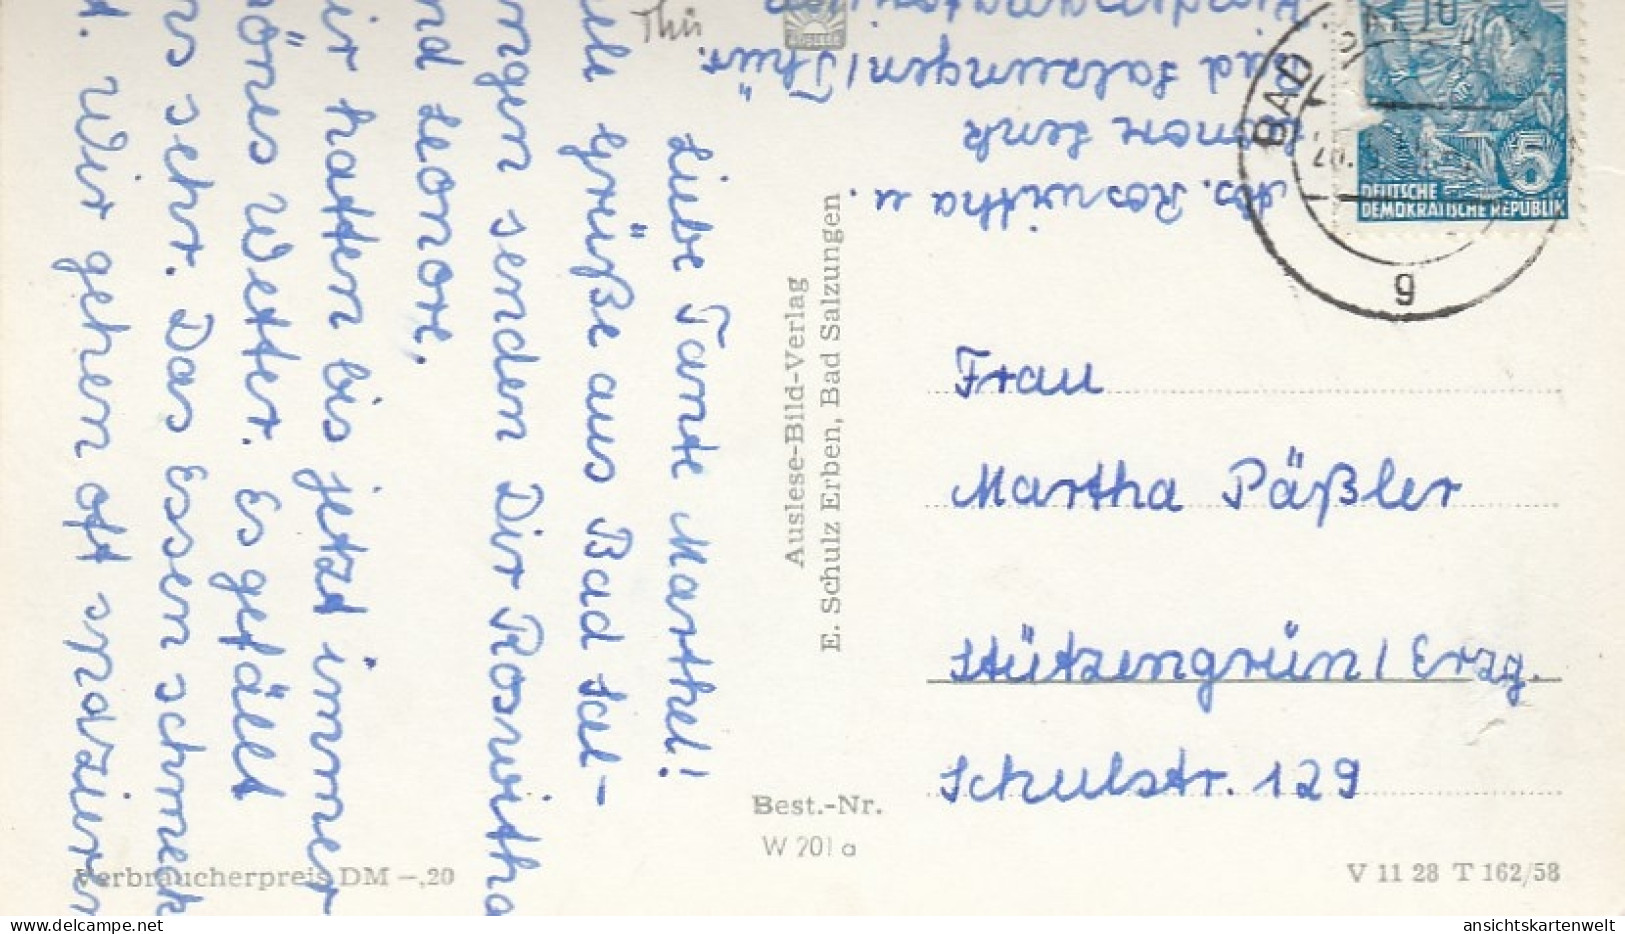 Liebe Tante Marthel!
Viele Grüße aus Bad Sal-
ungen senden Dir Roswitha
und Leonore.
Wir hatten bis jetzt immer
schönes Wetter. Es gefällt
uns sehr. Das Essen schmeckt
Wir gehen oft spazieren
Abs. Roswitha u.
Lenk
Bad Salzungen/Thür.
Thür
Auslese-Bild-Verlag
E. Schulz Erben, Bad Salzungen
BAD
g
5
DEUTSCHE
DEMOKRATISCHE REPUBLIK
Frau
Martha Päßler
Stützengrün/Erzg.
Schulstr. 129
Best.-Nr.
W 201 a
Verbraucherpreis DM –,20
V 11 28 T 162/58
ansichtskartenwelt